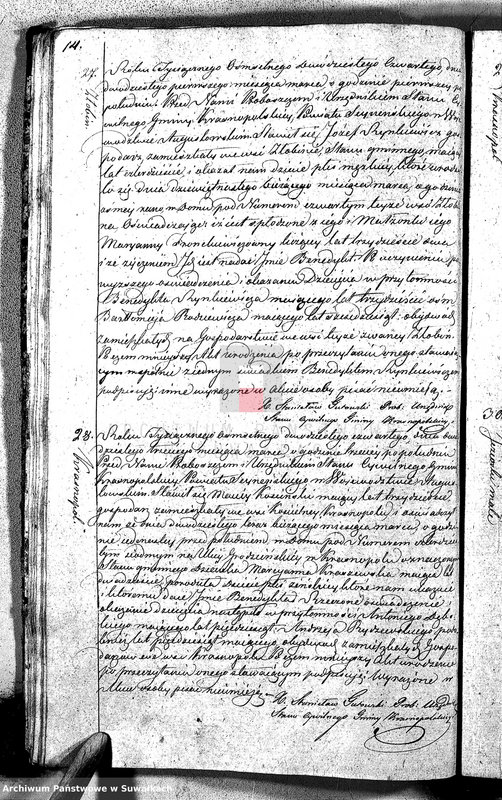 14.
27. Złobin
Roku Tysiącznego Ośmsetnego Dwudziestego Czwartego, dnia
dwudziestego pierwszego miesiąca marca o godzinie pierwszej po
południu Przed Nami Proboszczem i Urzędnikiem Stanu Cy-
wilnego Gminy Krasnopolskiey, Powiatu Seyneńskiego w Wo-
iewództwie Augustowskim Stawił się Jozef Rynkiewicz gos-
podarz zamieszkały we wsi Złobinie, Stanu gminnego maiący
lat czterdzieści i okazał nam dziecie płci męzkiey, które urodzi-
ło się dnia dziewiętnastego bieżącego miesiąca marca, o godzinie
osmey rano, w Domu pod Numerem czwartym teyże wsi Złobi-
na, Oświadczaiąc iż iest spłodzone z niego i Małżonki iego
Maryanny liczącey lat trzydzieście dwa
i że życzeniem Jego iest nadać Imie Benedykt. Po uczynieniu po-
wyższego oświadczenia i okazaniu Dziecięcia w przytomności
Benedykta Rynkiewicza maiącego lat trzydzieści ośm
Bartłomieja maiącego lat sześćdziesiąt: obydwóch
zamieszkałych na Gospodarstwie we wsi teyże zwaney Złobin.
Poczem ninieyszy Akt urodzenia po przeczytaniu onego stawaią-
cym wspólnie z iednym świadkiem Benedyktem Rynkiewiczem
podpisaliśmy inne wyrażone w akcie osoby pisać nieumieią.
X. Stanisław Gutowski Prob. Urzędnik
Stanu Cywilnego Gminy Krasnopolskiey.
28. Krasnopol.
Roku Tysiącznego ośmsetnego dwudziestego czwartego, dnia dwu-
dziestego trzeciego miesiąca marca o godzinie trzeciey po południu
Przed Nami Proboszczem i Urzędnikiem Stanu Cywilnego Gminy
Krasnopolskiey Powiatu Seyneńskiego w Woiewództwie Augus-
towskim. Stawił się Maciey Kosiński maiący lat trzydzieście
gospodarz zamieszkały we wsi kościelney Krasnopolu i oświadczył
nam, że dnia dwudziestego bieżącego miesiąca marca o godzi-
nie iedenastey przed południem w Domu pod Numerem
tym siódmym na Ulicy Grodzieńskiey w Krasnopolu oznaczonym
Stanu gminnego Dziewka Maryanna maiąca lat
dwadzieście porodziła dziecie płci żeńskiey, które nam okazuie
i któremu daie Imie Benedykta. Rzeczone oświadczenie i
okazanie dziecięcia nastąpiło w przytomności Antoniego
maiącego lat piędziesiąt, Andrzeja
lat piędziesiąt maiącego, obydwóch zamieszkałych Gospo-
darzów we wsi Krasnopolu. Poczem ninieyszy Akt urodzenia
po przeczytaniu onego stawaiącym podpisaliśmy. Wyrażone w
Akcie osoby pisać nieumieią.
X. Stanisław Gutowski Prob. Urzędnik
Stanu Cywilnego Gminy Krasnopolskiey
Archiwum Państwowe w Suwałkach